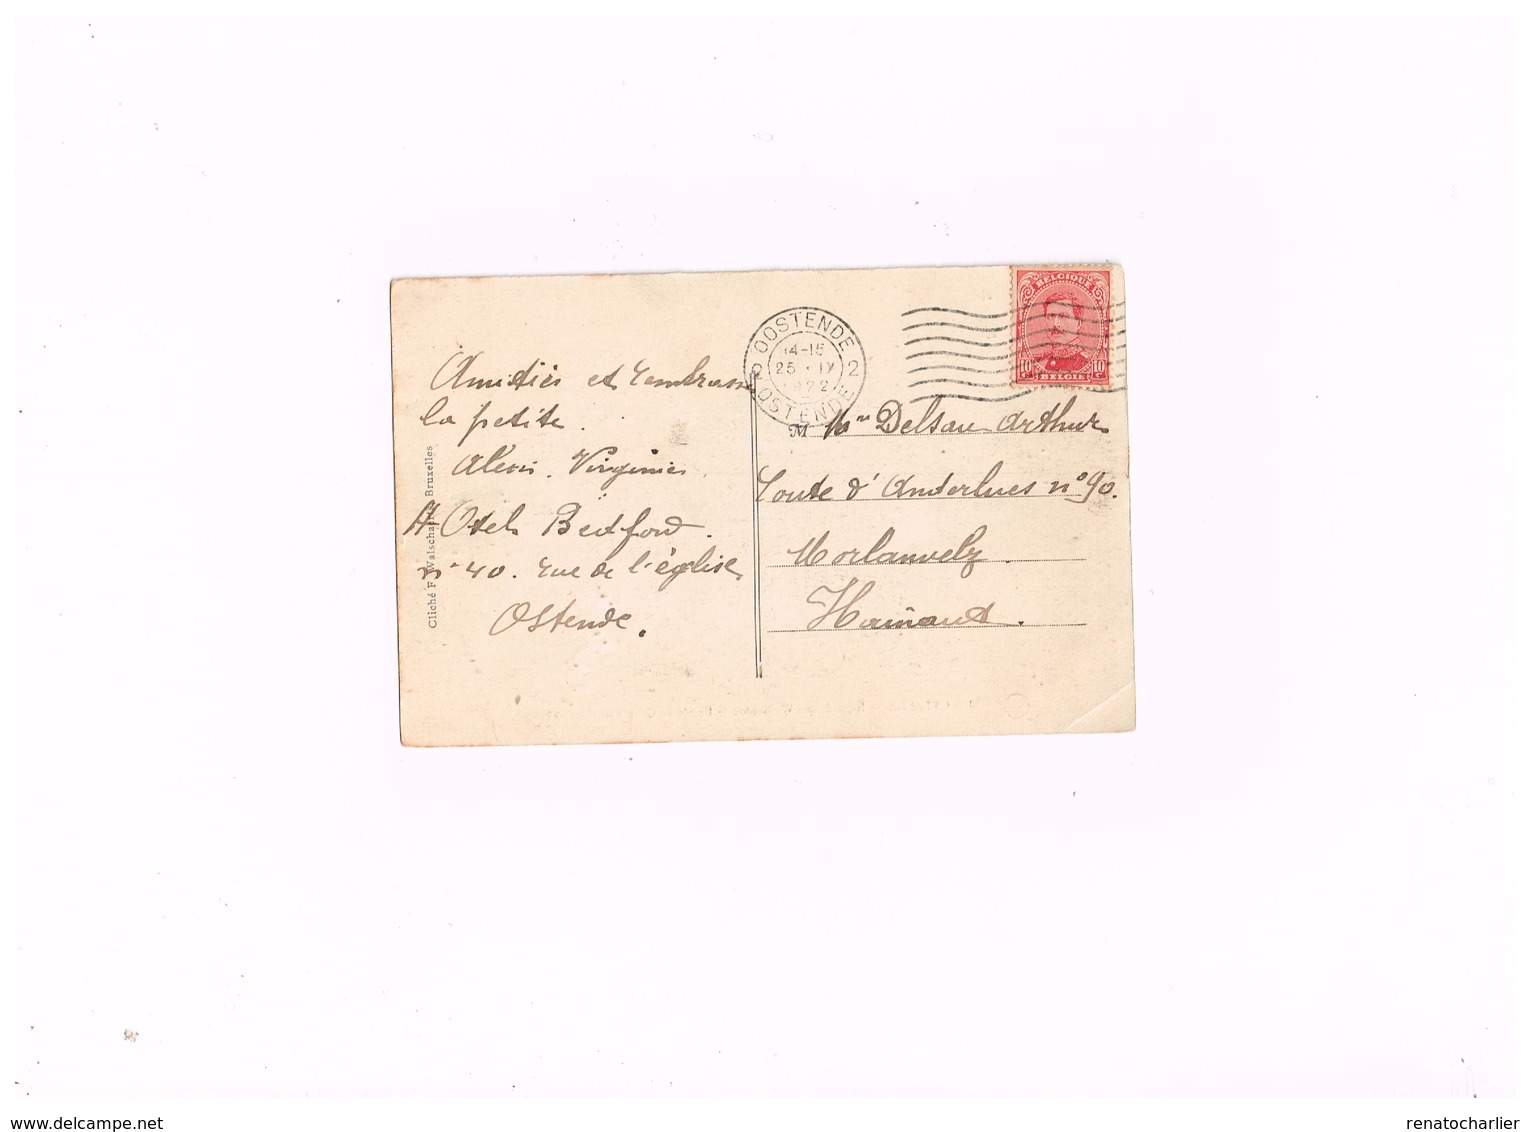 OOSTENDE
14-15
2 25 · IX 2
1922
OSTENDE
BELGIQUE
10 10
BELGIË
Amitiés et embrasse
la petite.
Alexis. Virginie.
Hotel Bedford.
n° 40. rue de l'église
Ostende.
Cliché F. Walschaerts Bruxelles
M Mr Delsau Arthur
route d'Anderlues n° 90.
Morlanwelz.
Hainaut.
delcampe.net
renatocharlier